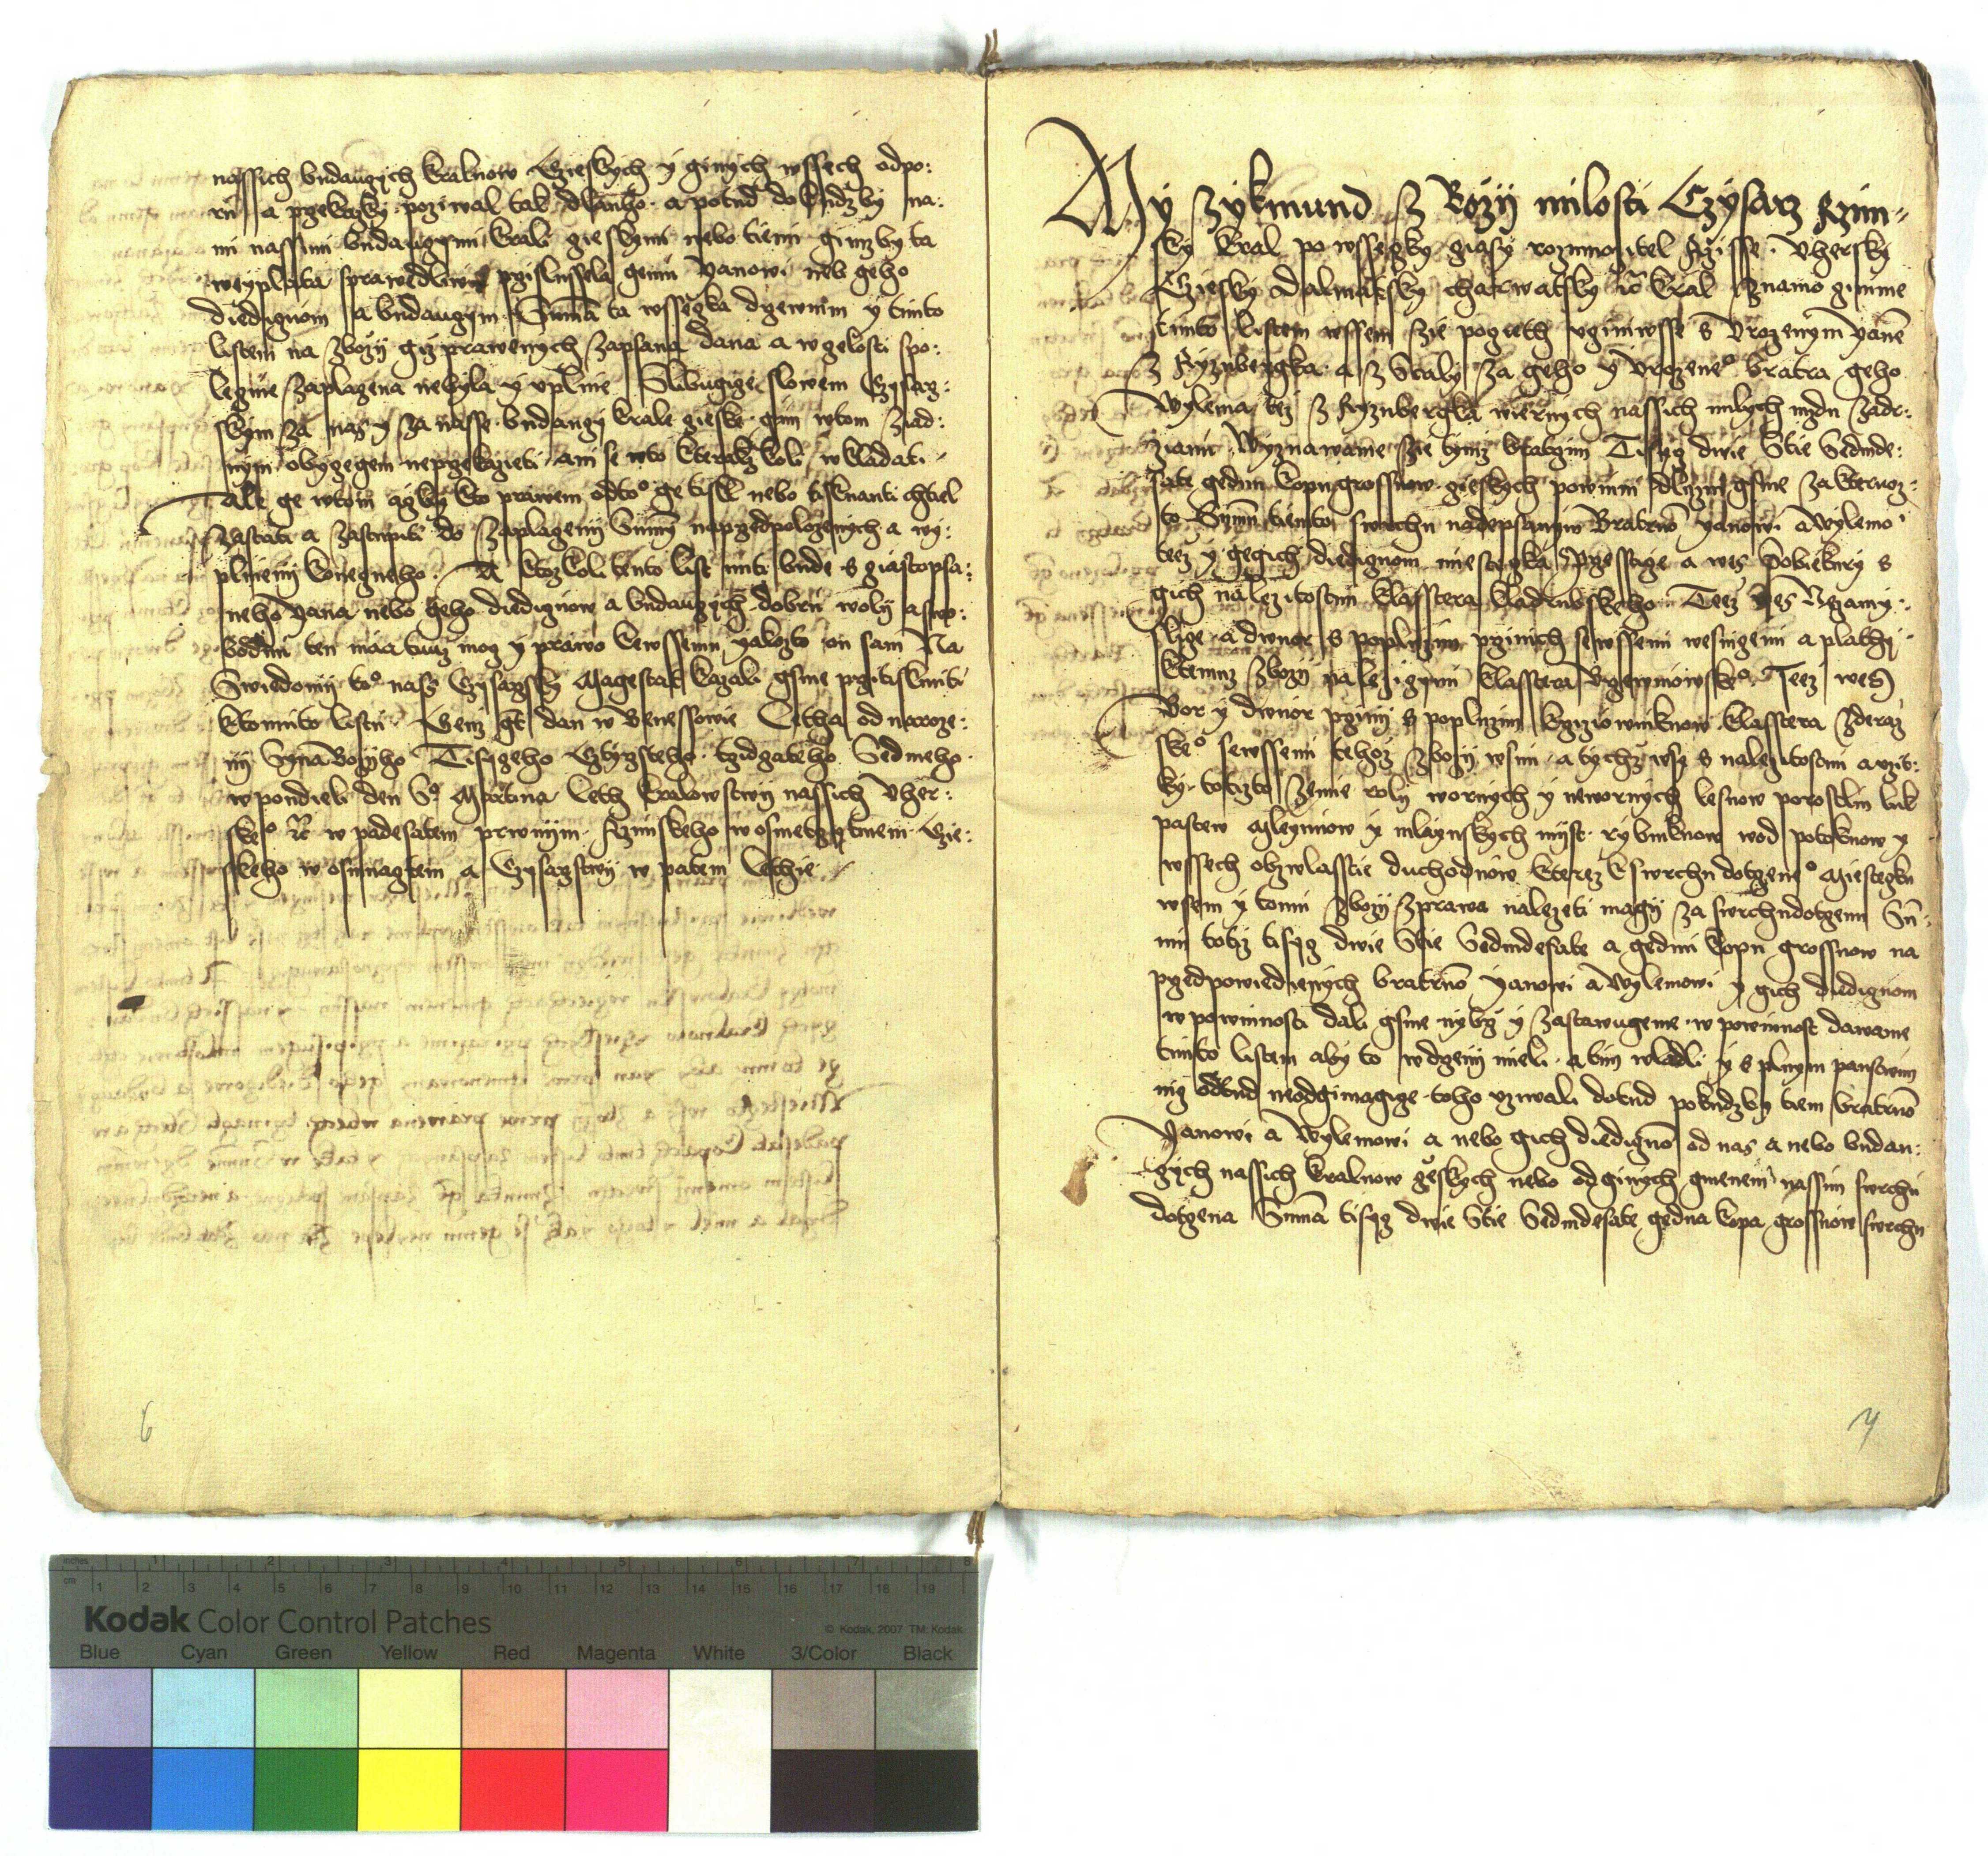 nassich budauczych kraluow Czieskych y ginych wssech odpo:
ru a przekazky poziwal tak dlauho a potud dokudzby na:
mi nassimi budauczymi krali czieskymi nebo tiemi gimzby ta
weyplata sprawedliwie przislussela gemu Yanowi neb geho
diediczuom a budauczym Suma ta wssiczka drzewnim y timto
listem na zbozij giz prawenych zapsana dana a w czelosti spo:
leczne zaplaczena nebyla y uplnie Slibugicze slowem Czysarz:
skym za nas y za nasse budauczy krale czieske gim w tom ziad:
nym obyczegem neprzekazieti ani se w to kterakzkoli wkladati
Ale ge w tom azby kto prawem od to&#xBA; ge tiskl nebo tisknauti chtiel
zastati a zastupiti do zaplaczenij Summy napredpolozenych a wy:
plnienij koneczneho A ktozkoli tento list miti bude s giastopsa:
neho Yana nebo geho diediczuow a budauczych dobru woly a swo:
bodnu ten maa tuuz mocz y prawo kewssemu yakozto on sam Na
Swiedomij toº nass Czysarzsky Magestat kazali gsme przitisknuti
k tomuto listu Genz gt dan w Benessowie Letha od naroze:
nij Syna Bozyho Tisyczeho Cztyrzsteho trzidczateho Sedmeho
w pondieli den Sº Martina Leth kralowstwij nassich Vher:
skeº &c w padesatem prwnijm Rzimskeho w osmetzcytmem Czie:
skeho w osmnacztem a Czysarzstwij w patem Lethie
6
My Zykmund z Bozij milosti Czysarz Rzim-
sky kral po wsseczky czasy rozmnozitel Rzisse Vhersky
Cziesky Dalmatsky charwatsky &c kral Znamo czinime
timto listem wssem Zie pogieth ucziniwsse s Vrozenym Yanem
z Ryzmbergka a z Skaly za geho y Vrozeneº bratra geho
Wylema tez z Ryzmbergka wiernych nassich milych mzdu zadr:
zianu Wyznawame zie tymz bratrzim Tisycz dwie Stie Sedmde:
sate gednu kopu grossuow czieskych powinni dluzni gsme za kteruoz:
to Summu tiemto swrchu nadepsanym Bratruom Yanowi a Wylemo
teez y gegich diediczuom miesteczka Przesstige a wes Pobiekury s
gich nalezitostmi klasstera kladrubskeho Teez wes Rzamy:
sslicze a dwuor s popluzim przi nich sewssemi wesniczemi a plathy
k temuz zbozij nalezigiczymi klasstera Brzewniowskeº Teez wes
Bor y dwuor przi nij s popluzim krzizowniknow klasstera zderaz
skeº sewssemi tehoz zbozij wsmi a tychz wsy s nalezitostmi a uzit:
ky totizto zemie roly wornych y newornych lesnow porostlin luk
pastew Mleyniow y mlaynskych mijst rybniknow wod potoknow y
wssech obzwlasstie duchoduow kterez k swrchu dotczeneº Miesteczku
wsem y tomu zbozij zprawa nalezeti magij za swrchudotczenu Su:
mu totiz tisycz dwie Stie Sedmdesate a gednu kopu grossuow na
przedpowiedienych bratruom Yanowi a Wylemowi y gich diediczuom
w powinnosti dali gsme nybrz y zastawugeme w powinnost dawame
timto listem aby to w drzenij mieli a tim wladli y s plnym panstwim
nicz odtud neodgimagicze toho uziwali dotud pokudzby tiem bratruom
Yanowi a Wylemowi a nebo gich diediczuom od nas a nebo budau:
czych nassich kraluow czeskych nebo od ginych gmenem nassim swrchu
dotczena Summa tisycz dwie Stie Sedmdesate gedna kopa grossuow swrchu
7
inches 1 2 3 4 5 6 7 8
cm 1 2 3 4 5 6 7 8 9 10 11 12 13 14 15 16 17 18 19
Kodak Color Control Patches © Kodak, 2007 TM: Kodak
Blue Cyan Green Yellow Red Magenta White 3/Color Black